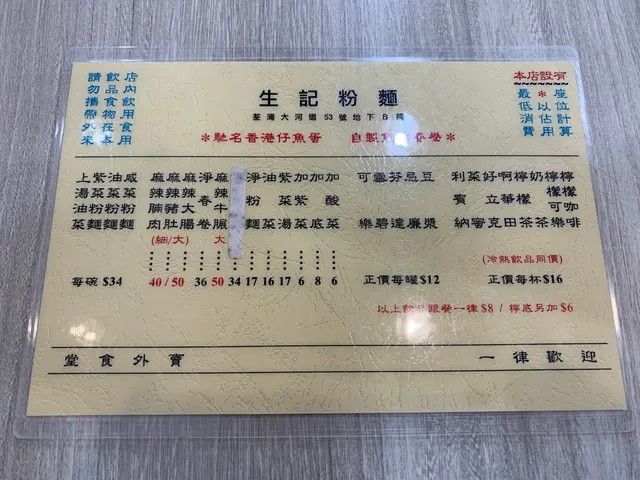 請勿攜帶外來
飲品食物在本
店內飲用食用
生記粉麵
荃灣大河道 53 號地下 B 鋪
*馳名香港仔魚蛋
自製魚
春卷*
本店設有
最低消費
*以佔用
座位計算
上湯油菜
紫菜粉麵
油菜粉麵
咸菜粉麵
每碗 $34
麻辣腩肉
麻辣豬肚
麻辣大腸
(細/大)
40 / 50
淨春卷
36
麻辣牛
大
50
34
淨粉麵
17
油菜
16
紫菜湯
17
加紫菜
6
加底
8
加酸菜
6
可樂
雪碧
芬達
忌廉
豆漿
正價每罐 $12
利賓納
菜密
好立克
啊華田
檸檬茶
奶茶
檸檬可樂
檸檬咖啡
(冷熱飲品同價)
正價每杯 $16
以上飲品跟餐一律 $8 / 檸底另加 $6
堂食外賣
一律歡迎